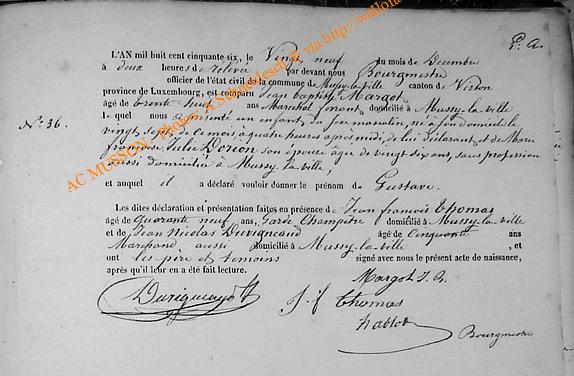 P. A.
L'AN mil huit cent cinquante-six, le Vingt neuf du mois de Décembre
à deux heures de relevée par devant nous Bourgmestre
officier de l'état civil de la commune de Mussy-la-ville canton de Virton
province de Luxembourg, est comparu Jean baptiste Margot
âgé de trente neuf ans Marechal ferrant domicilié à Mussy-la-ville
N° 36.
lequel nous a présenté un enfant du sexe masculin, né à son domicile le
vingt sept de ce mois, à quatre heures après midi, de lui déclarant et de Marie
françoise Julie Dorion son épouse âgée de vingt six ans, sans profession
aussi domiciliée à Mussy la ville,
et auquel il a déclaré vouloir donner le prénom de Gustave.
Les dites déclaration et présentation faites en présence de Jean françois Thomas
âgé de Quarante neuf ans, Garde Champêtre domicilié à Mussy-la-ville
et de Jean Nicolas Duvigneaud âgé de Cinquante ans
Marchand aussi domicilié à Mussy-la-ville, et
ont les père et témoins signé avec nous le présent acte de naissance,
après qu'il leur en a été fait lecture.
Margot J. B.
J. f Thomas
Bourgmestre
AC MUSSON - Photos: A.Schneidesch & via http://wallo